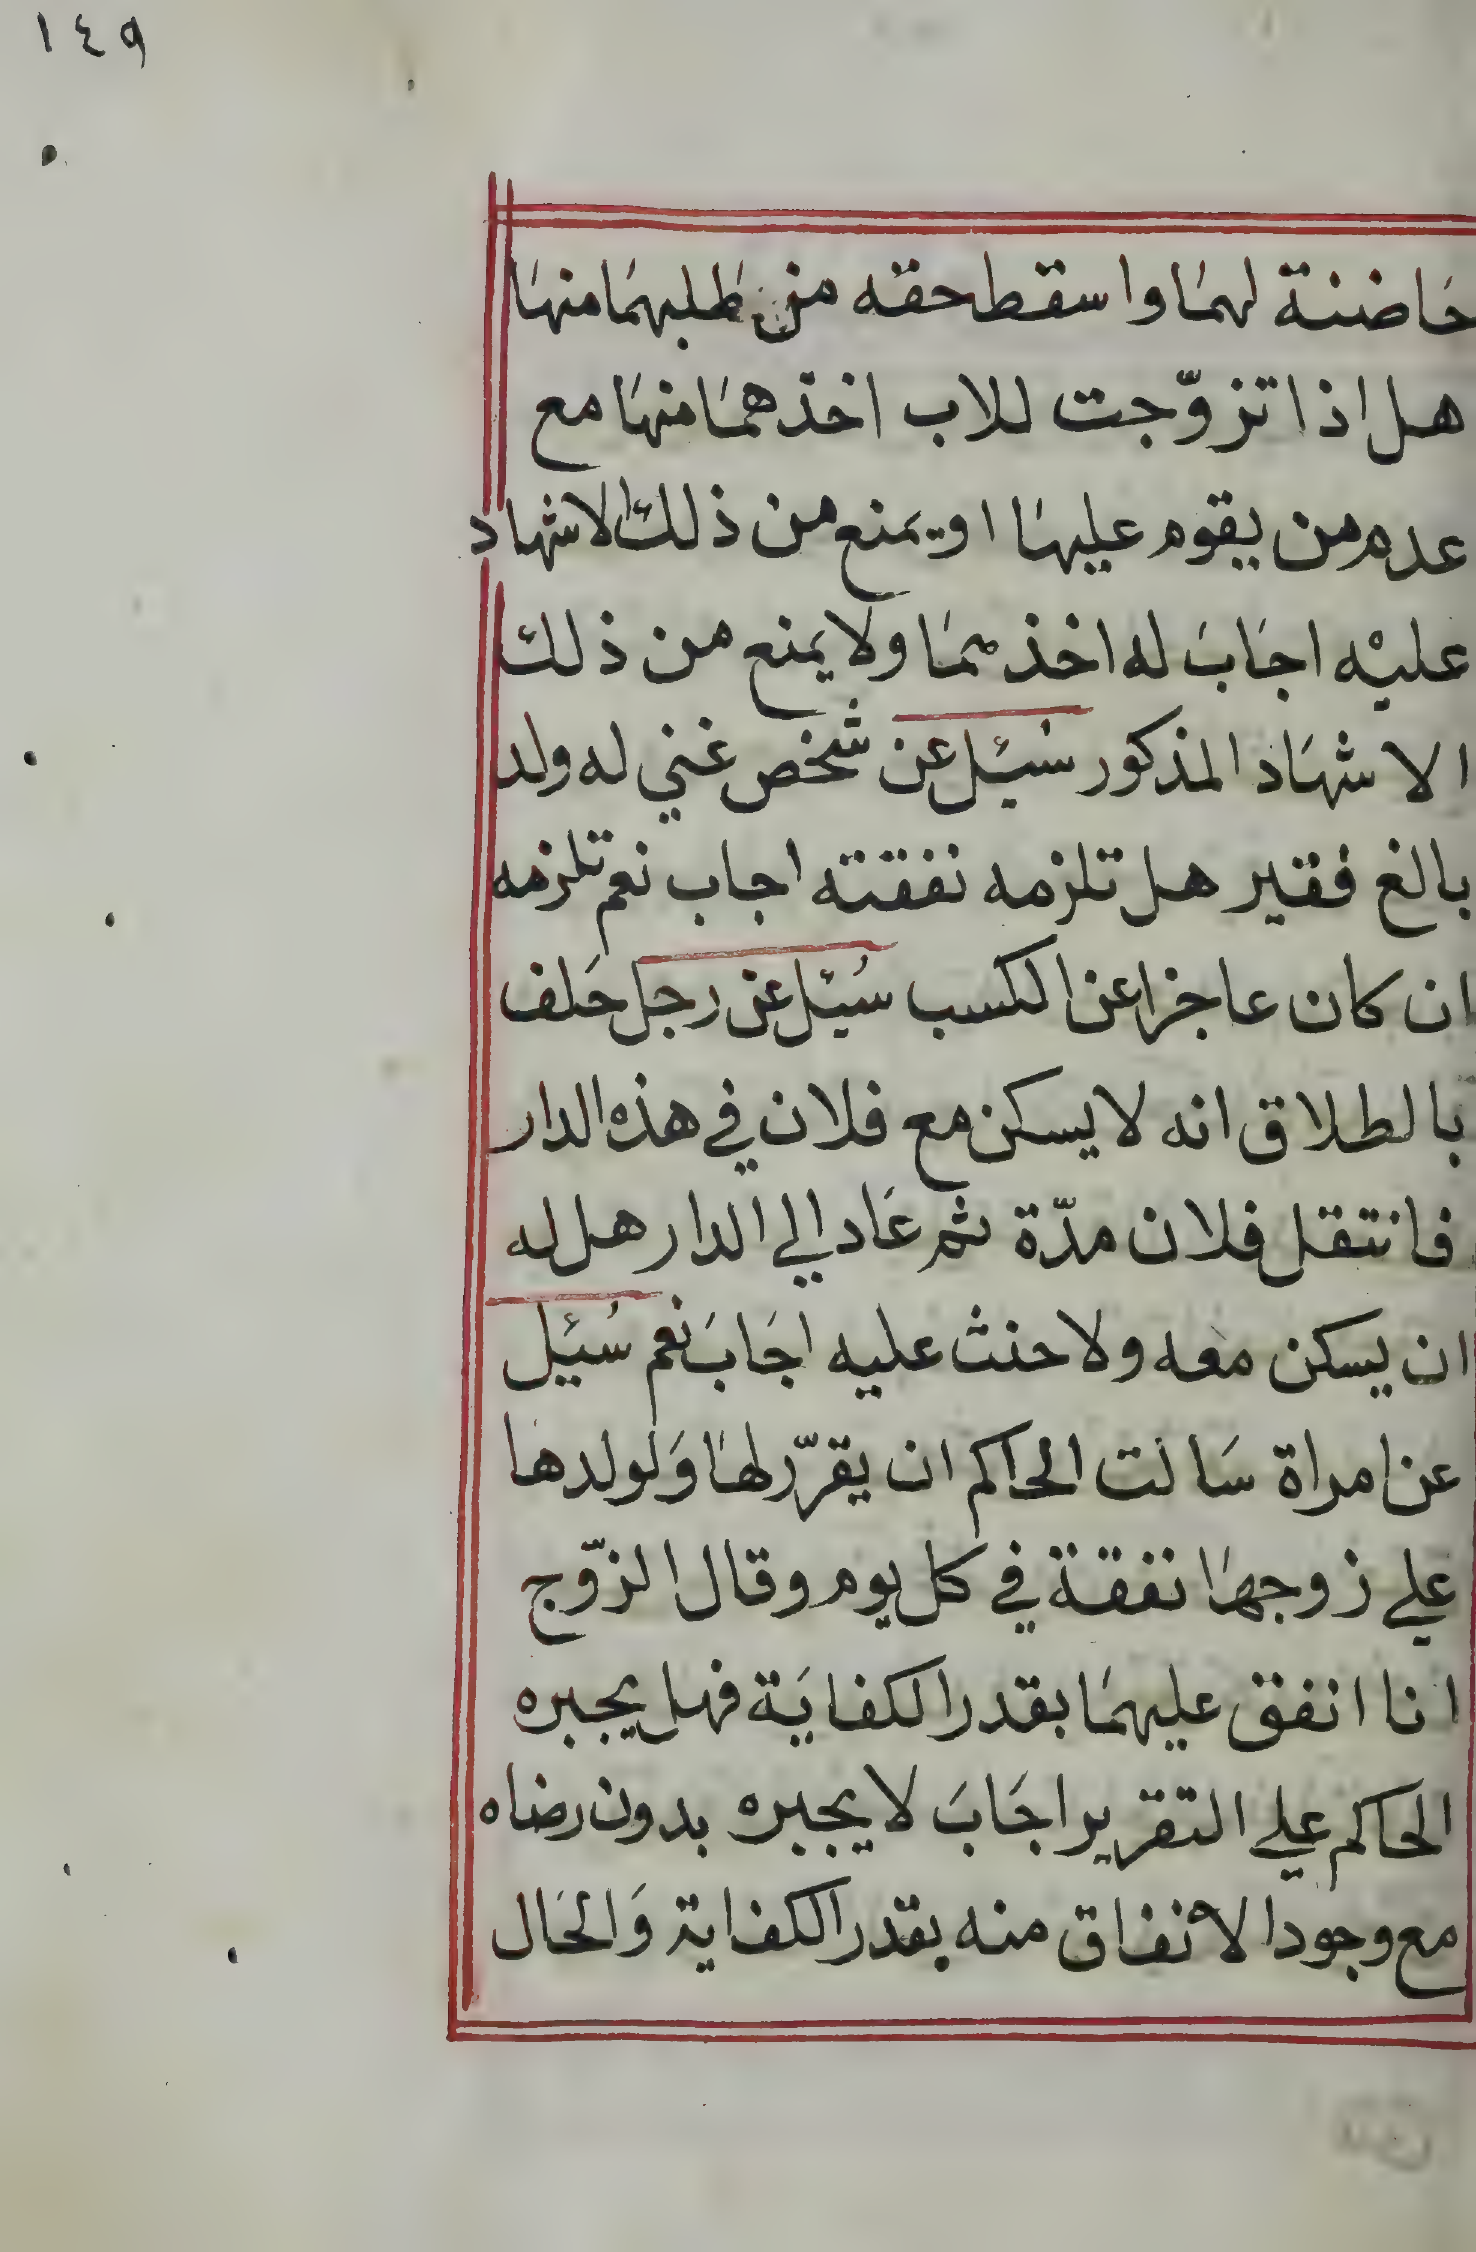 ١٤٩
حَاضنة لهمَا واسقط حقه من طلبهمَا منهَا
هل اذا تزوّجت للاب اخذهمَا منهَا مع
عدم من يقوم عليهَا او يمنع من ذلك الاشهاد
عليْه اجَابَ له اخذهمَا ولا يَمنع من ذلك
الاشهَاد المذكور سُئيل عن شخص غني له ولد
بالغ فقير هل تلزمه نفقته اجاب نعم تلزمه
ان كان عاجزا عن الكسب سُئيل عن رجل حَلف
بالطلاق انه لا يسكن مع فلان في هذه الدار
فانتقل فلان مدّة ثم عَاد الي الدار هل له
ان يسكن معه ولا حنث عليه اجَابَ نعم سُئيَل
عن امراة سَالت الحاكم ان يقرّر لهَا وَلولدها
علي زوجهَا نفقة في كل يوم وقال الزّوج
انا انفق عليهمَا بقدر الكفايَة فهل يجبره
الحَاكم علي التقرير اجَابَ لا يجبره بدون رضاه
مع وجود الانفاق منه بقدر الكفاية وَالحَال